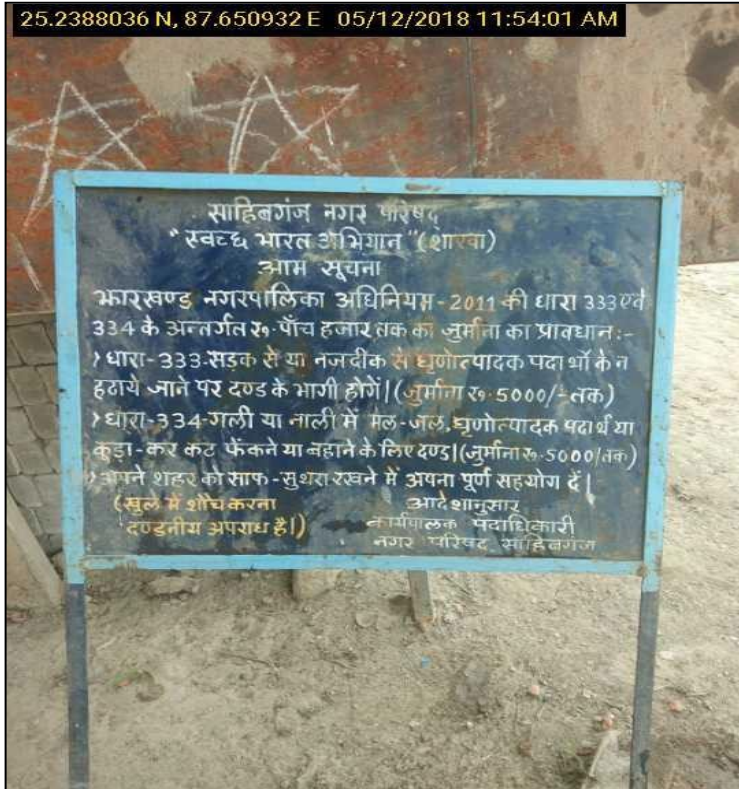 25.2388036 N, 87.650932 E 05/12/2018 11:54:01 AM
साहिबगंज नगर परिषद
"स्वच्छ भारत अभियान" (शाखा)
आम सूचना
झारखण्ड नगरपालिका अधिनियम-2011 की धारा 333 एवं
334 के अन्तर्गत रू. पाँच हजार तक का जुर्माना का प्रावधान:-
> धारा-333-सड़क से या नजदीक से घृणोत्पादक पदार्थो के न
हटाये जाने पर दण्ड के भागी होगें। (जुर्माना रू. 5000/- तक)
> धारा-334-गली या नाली में मल-जल, घृणोत्पादक पदार्थ या
कुड़ा-कर कट फेंकने या बहाने के लिए दण्ड। (जुर्माना रू. 5000/तक)
> अपने शहर को साफ-सुथरा रखने में अपना पूर्ण सहयोग दें।
(खुले में शौच करना
दण्डनीय अपराध है।)
आदेशानुसार
कार्यपालक पदाधिकारी
नगर परिषद साहिबगंज